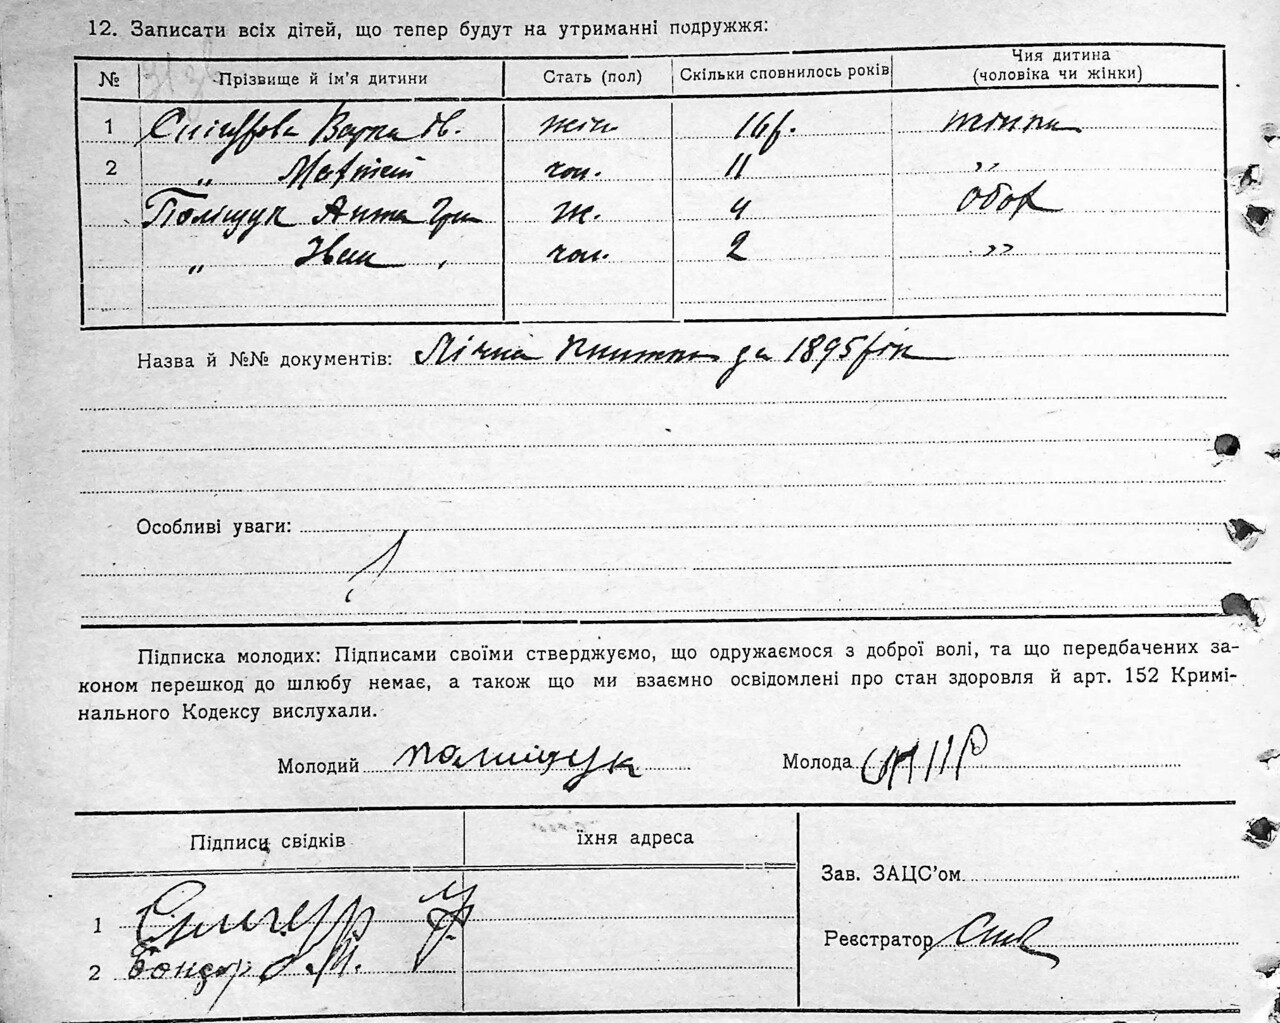 12. Записати всіх дітей, що тепер будут на утриманні подружжя:
№ Прізвище й ім'я дитини Стать (пол) Скільки сповнилось років Чия дитина (чоловіка чи жінки)
1 Варка Ів. жін. 16 р. жінки
2 „ Матвій чол. 11 „
Поліщук Анна ж. 4 обох
„ Іван чол. 2 „
Назва й №№ документів: Лічна книжка за 1895 рік
Особливі уваги:
Підписка молодих: Підписами своїми стверджуємо, що одружаємося з доброї волі, та що передбачених за-
коном перешкод до шлюбу немає, а також що ми взаємно освідомлені про стан здоровля й арт. 152 Кримі-
нального Кодексу вислухали.
Молодий Поліщук Молода
Підписи свідків їхня адреса
Зав. ЗАЦС'ом
1
Реєстратор
2 Бондар М.